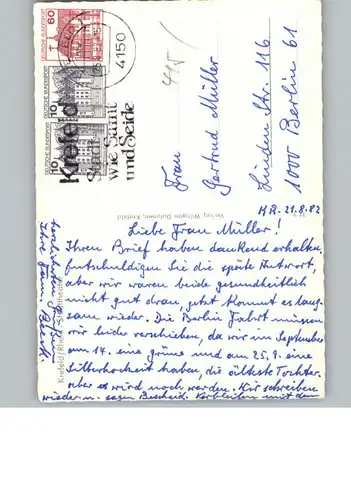 DEUTSCHE BUNDESPOST
60
DEUTSCHE BUNDESPOST
10
DEUTSCHE BUNDESPOST
10
4150
Krefeld
Stadt
wie Samt
und Seide
Frau
Gertrud Müller
Linden Str. 116
1000 Berlin 61
Verlag Wilhelm Krefeld
Krefeld/Rhein Stadttheater
KR. 21.8.82
Liebe Frau Müller!
Ihren Brief haben dankend erhalten,
entschuldigen Sie die späte Antwort,
aber wir waren beide gesundheitlich
nicht gut dran, jetzt kommt es lang-
sam wieder. Die Berlin Fahrt müssen
wir leider verschieben, da wir im September
am 14. eine grüne und am 25.9. eine
Silberhochzeit haben, die älteste Tochter.
aber es wird noch werden. Wir schreiben
wieder u. sagen Bescheid. Verbleiben mit den
herzlichsten Grüßen
Ihre Fam.